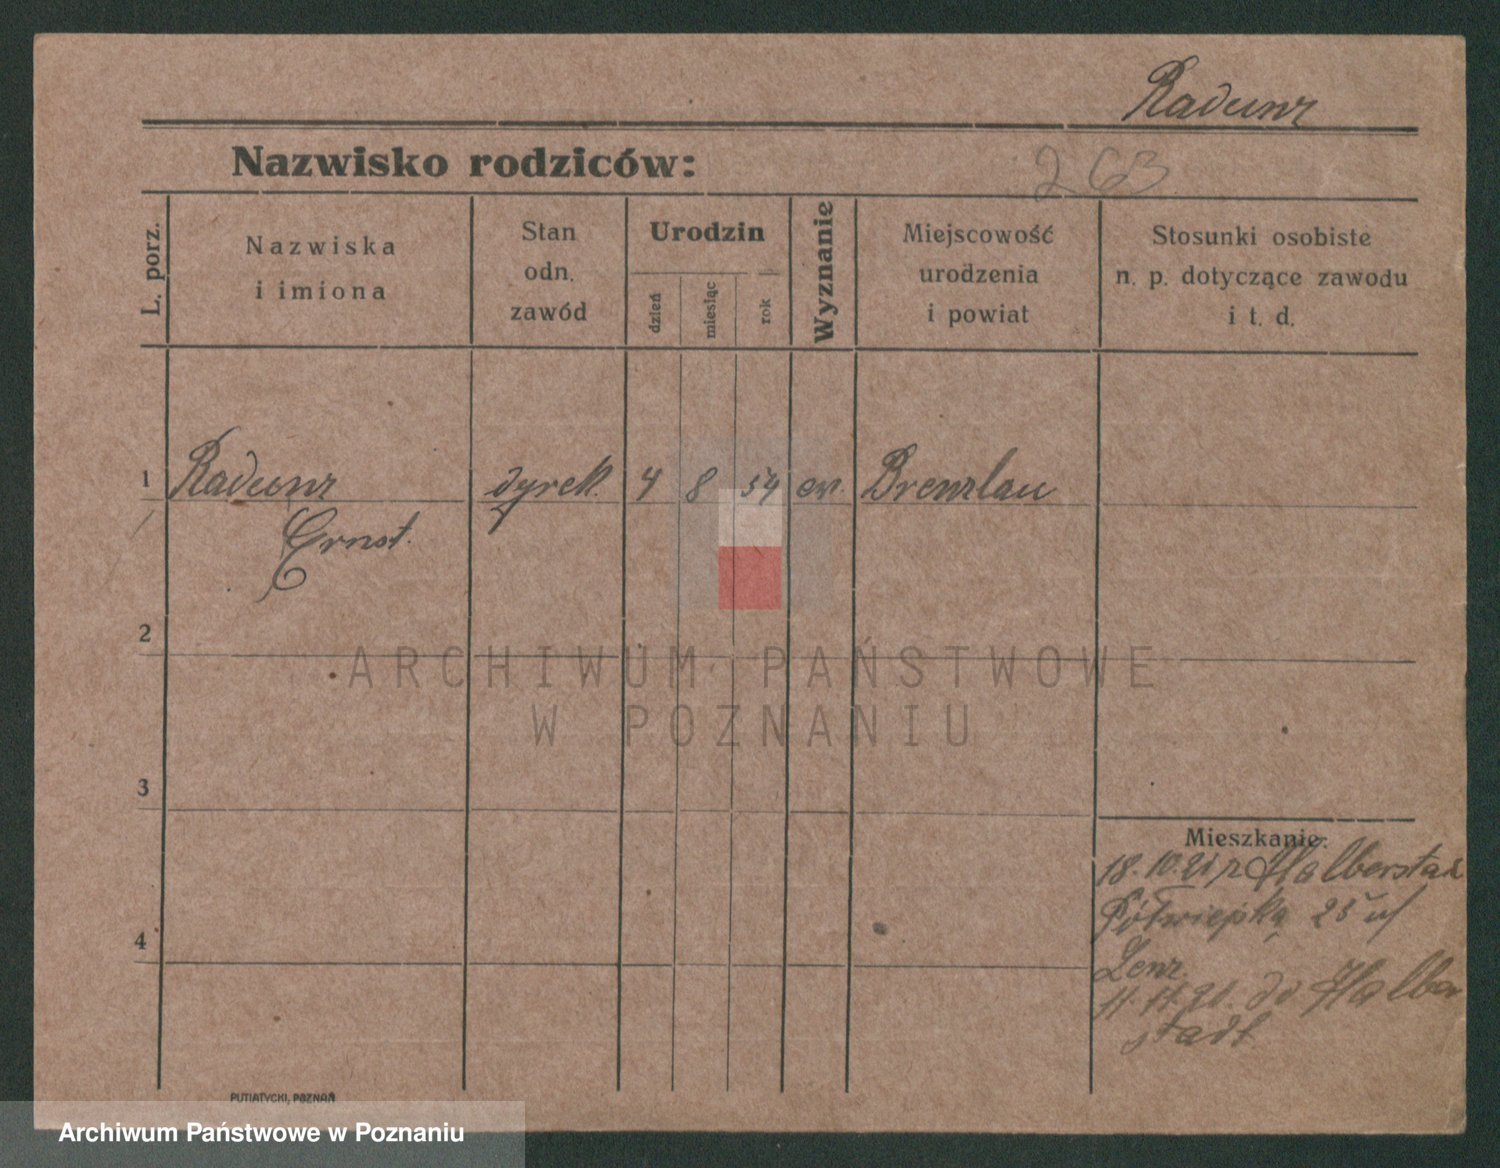 Radunz
Nazwisko rodziców:
263
L. porz.
Nazwiska
i imiona
Stan
odn.
zawód
Urodzin
dzień
miesiąc
rok
Wyznanie
Miejscowość
urodzenia
i powiat
Stosunki osobiste
n. p. dotyczące zawodu
i t. d.
1 Radunz dyrek. 4 8 54 ew. Prenzlau
Ernst.
2
ARCHIWUM PAŃSTWOWE
W POZNANIU
3
Mieszkanie:
18.10.21 z Halberstad
Półwiejska 25 u/
Lenz
11.11.21. do Halber
stadt
4
PUTIATYCKI, POZNAŃ
Archiwum Państwowe w Poznaniu